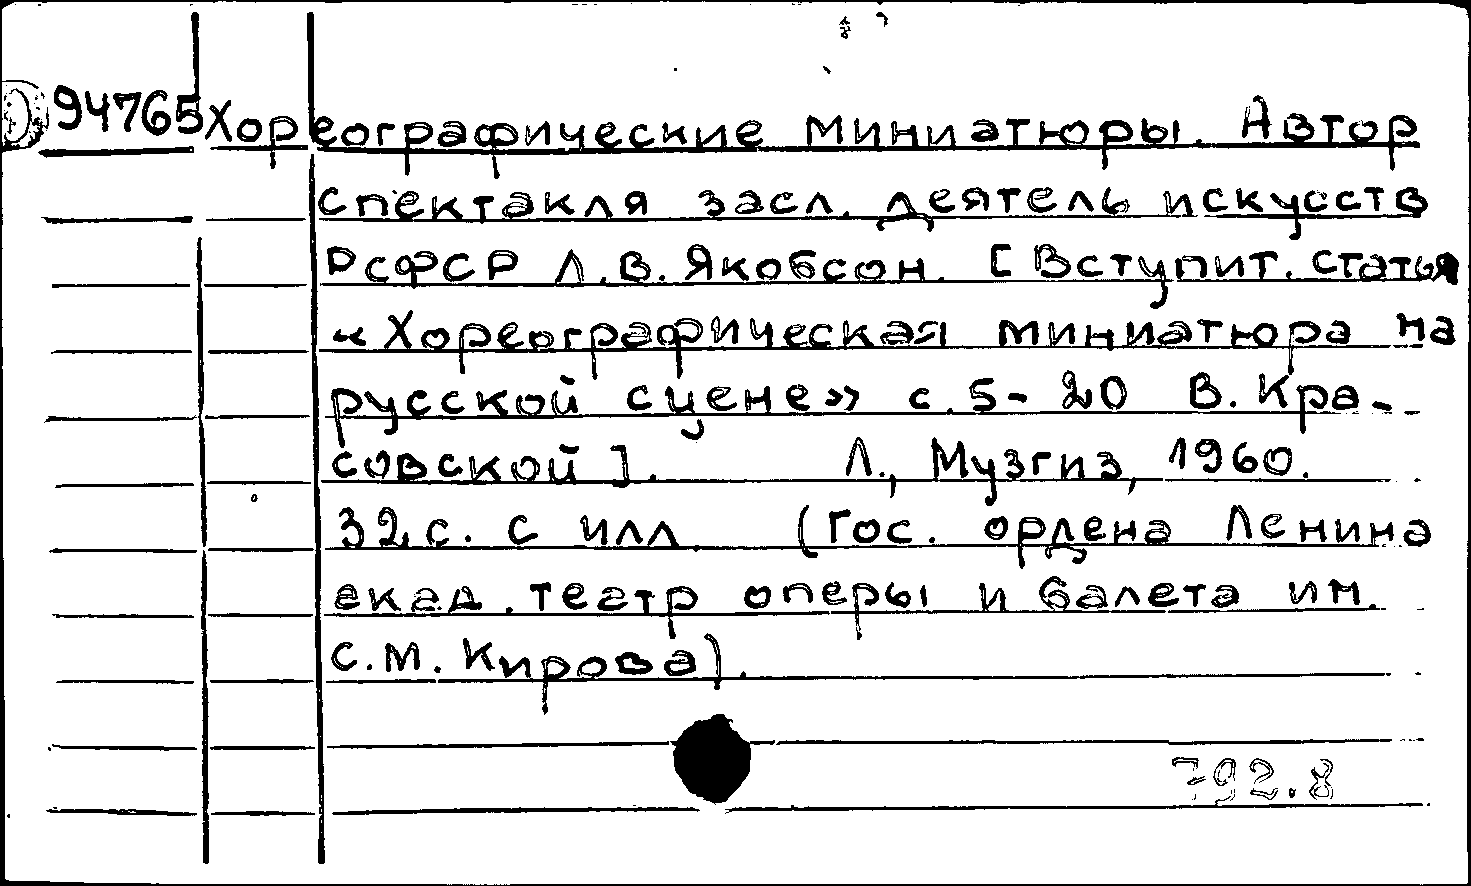 94765 Хореографические миниатюры. Автор
спектакля засл. деятель искусств
РСФСР Л.В. Якобсон. [Вступит. статья
«Хореографическая миниатюра на
русской сцене» с. 5-20 В. Кра-
совской]. Л., Музгиз, 1960.
32 с. с илл. (Гос. ордена Ленина
акад. театр оперы и балета им.
С.М. Кирова).
792.8